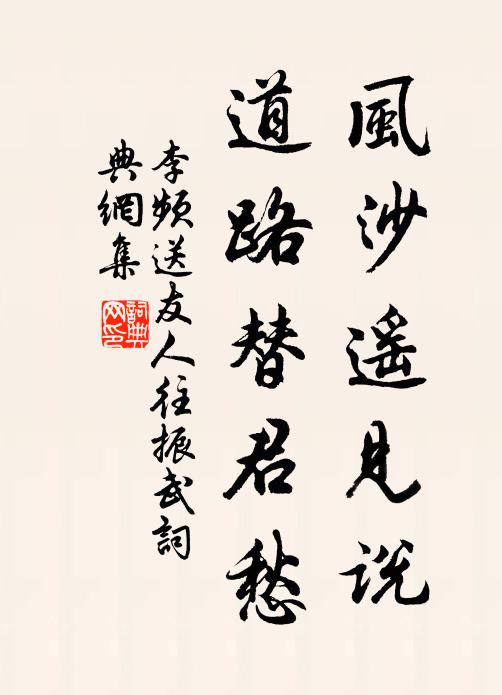 風沙遥見说
道路替君愁
李頻送友人往振武詞
典網集
詞典
网印